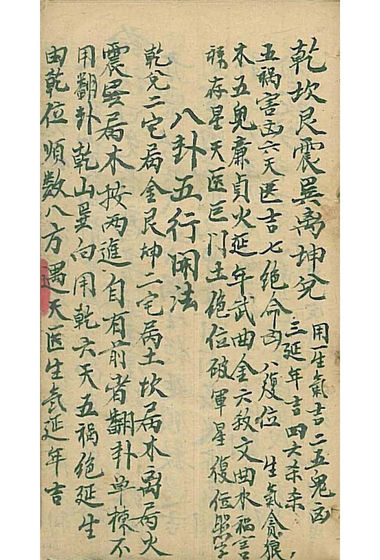 乾坎艮震巽离坤兌
用生氣吉二五鬼凶
三延年吉四六杀杀
五祸害凶六天医吉七绝命凶八復位 生氣貪狼
木五鬼廉貞火延年武曲金六杀文曲水祸害
祿存星天医巨門土绝位破軍星復位
八卦五行開法
乾兌二宅属金艮坤二宅属土坎属木离属火
震巽属木按两進自有前者翻卦单棟不
用翻卦乾山巽向用乾六天五祸绝延生
由乾位順数八方遇天医生気延年吉